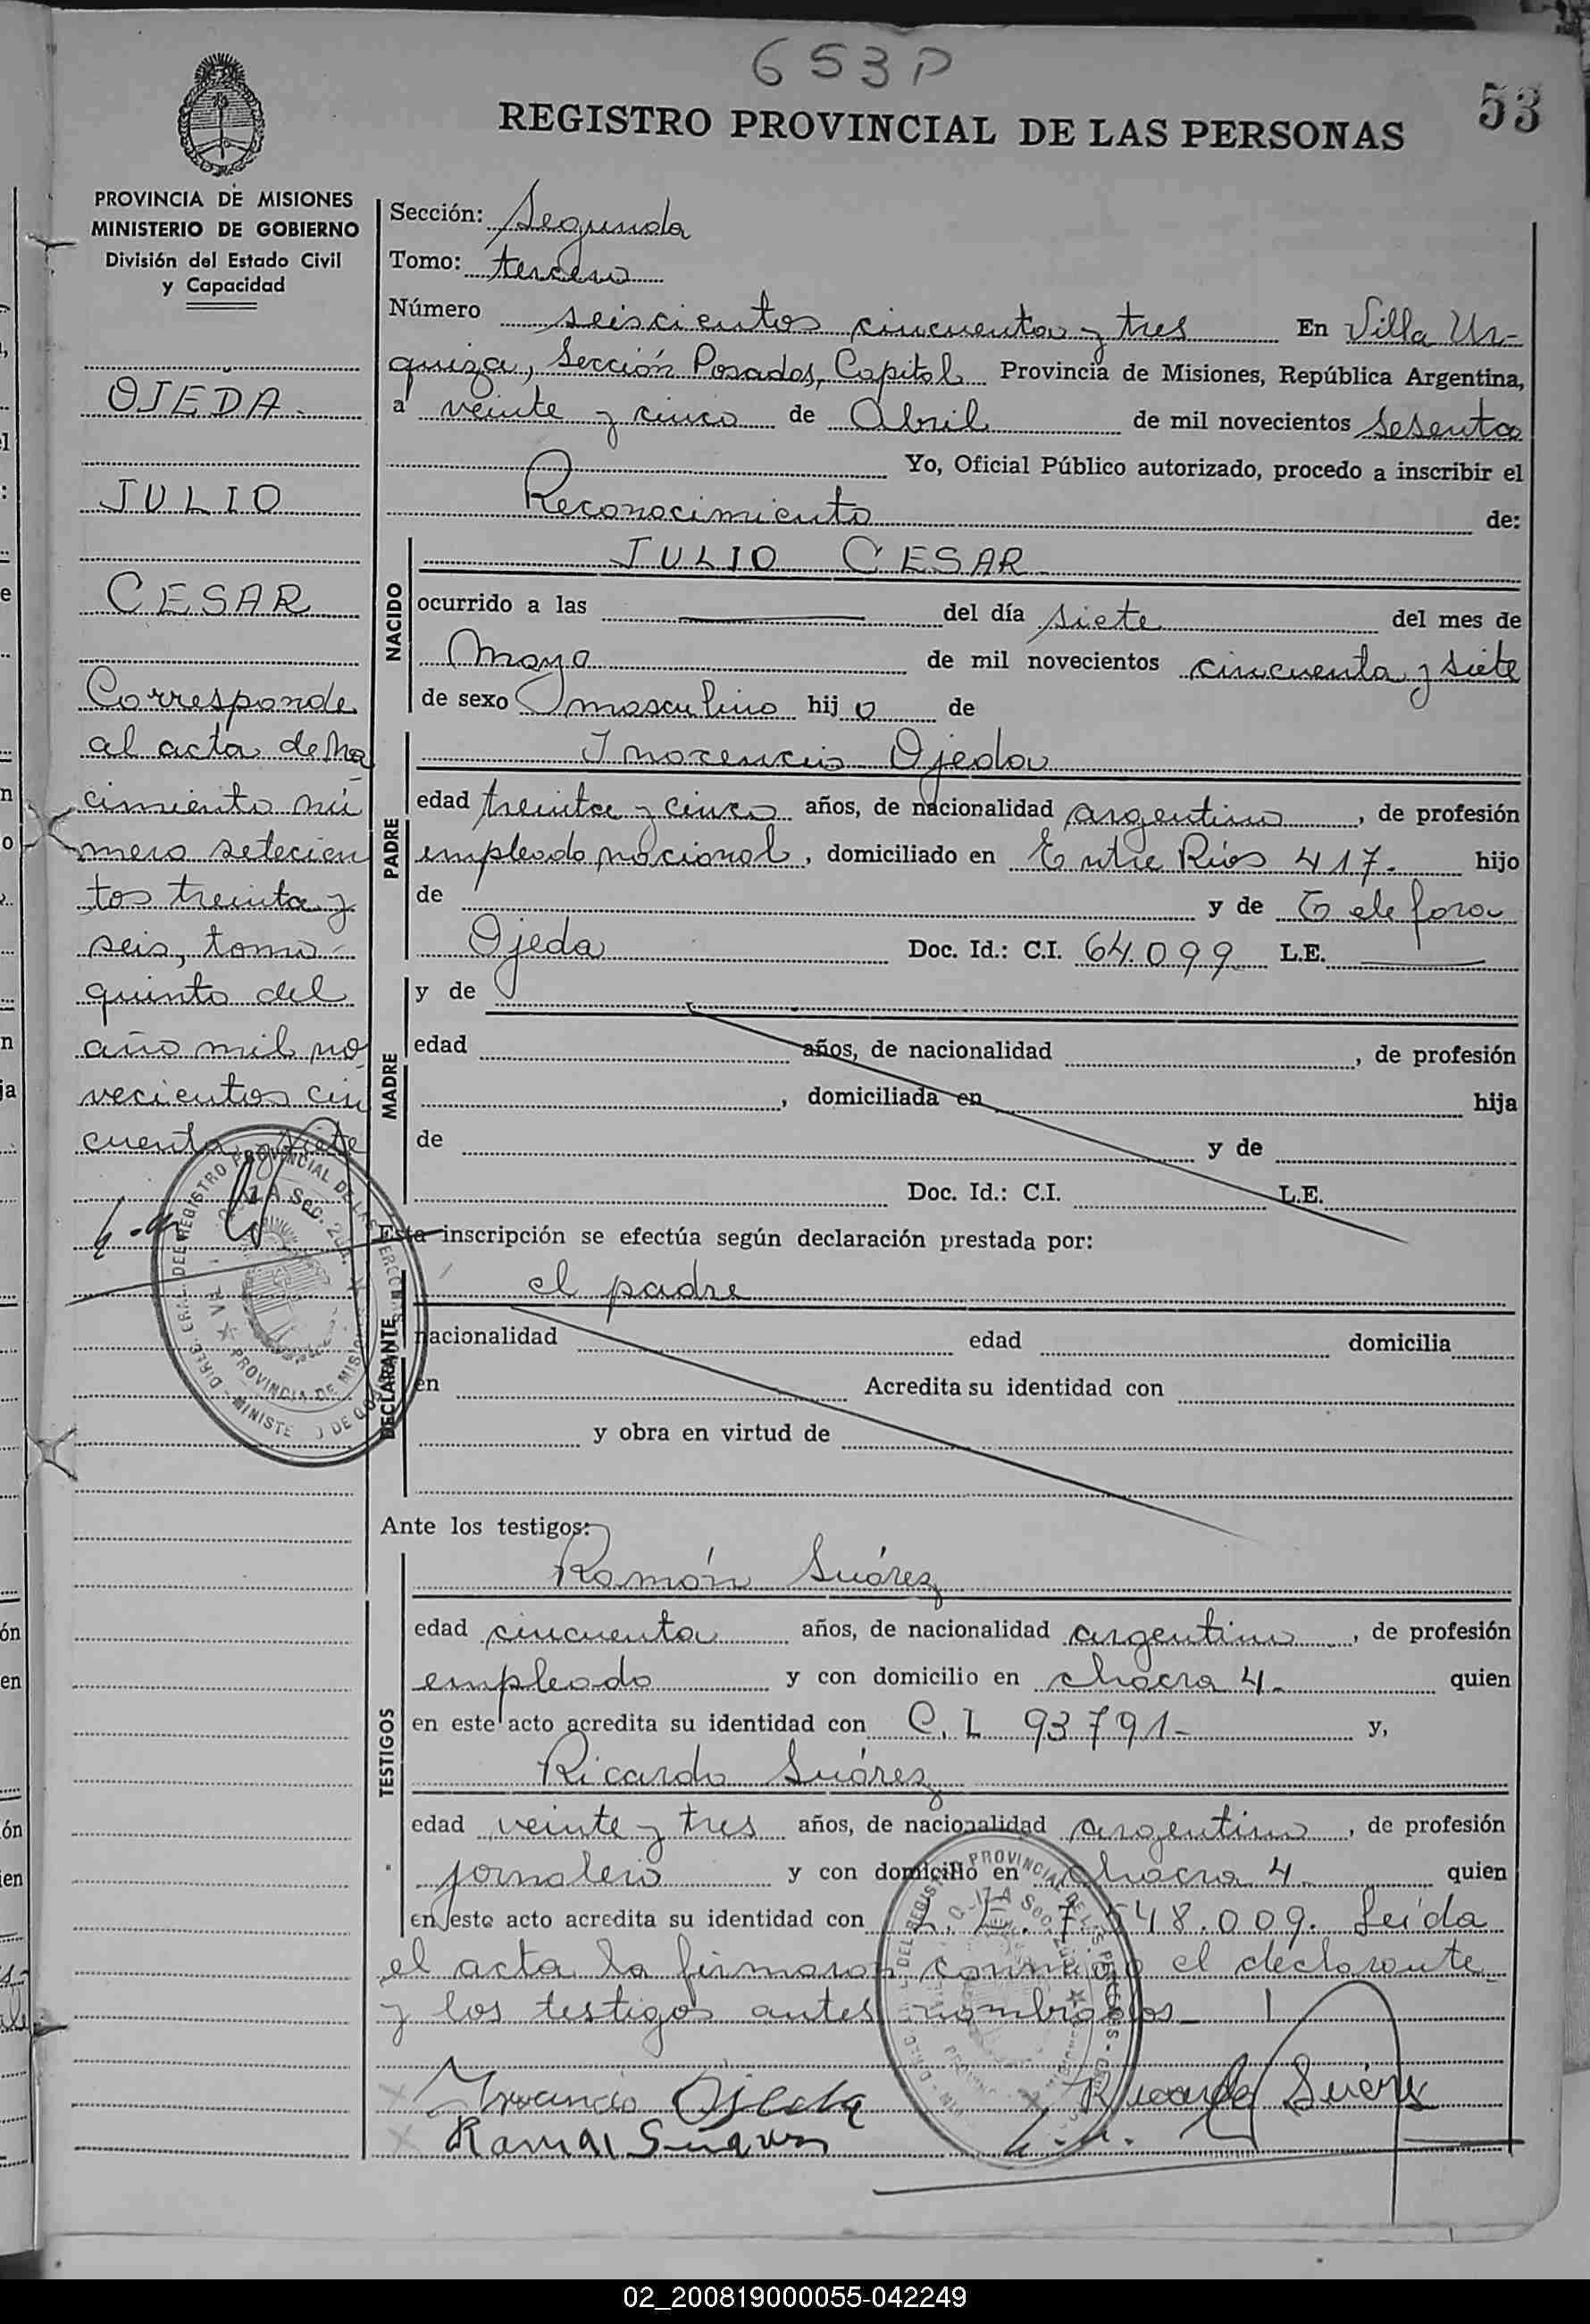 653P
53
REGISTRO PROVINCIAL DE LAS PERSONAS
PROVINCIA DE MISIONES
MINISTERIO DE GOBIERNO
División del Estado Civil
y Capacidad
OJEDA.
JULIO
CESAR
Corresponde
al acta de na
cimiento nú
mero setecien
tos treinta y
seis, tomo
quinto del
año mil no
vecientos cin
cuenta y siete
Sección: Segunda
Tomo: tercero
Número seiscientos cincuenta y tres En Villa Ur-
quiza, Sección Posadas, Capital Provincia de Misiones, República Argentina,
a veinte y cinco de Abril de mil novecientos sesenta
Yo, Oficial Público autorizado, procedo a inscribir el
Reconocimiento de:
NACIDO
JULIO CESAR
ocurrido a las del día siete del mes de
Mayo de mil novecientos cincuenta y siete
de sexo masculino hijo de
PADRE
Inocencio Ojeda
edad treinta y cinco años, de nacionalidad argentino, de profesión
empleado nacional, domiciliado en Entre Ríos 417. hijo
de y de Telefora
Ojeda Doc. Id.: C.I. 64.099 L.E.
MADRE
y de
edad años, de nacionalidad , de profesión
, domiciliada en hija
de y de
Doc. Id.: C.I. L.E.
Esta inscripción se efectúa según declaración prestada por:
DECLARANTE
el padre
nacionalidad edad domicilia
en Acredita su identidad con
y obra en virtud de
Ante los testigos:
TESTIGOS
Ramón Suárez
edad cincuenta años, de nacionalidad argentino, de profesión
empleado y con domicilio en chacra 4- quien
en este acto acredita su identidad con C.I. 93791- y,
Ricardo Suárez
edad veinte y tres años, de nacionalidad argentino, de profesión
jornalero y con domicilio en chacra 4 quien
en este acto acredita su identidad con L.E. 7.548.009. Leída
el acta la firmaron conmigo el declarante
y los testigos antes nombrados-
Inocencio Ojeda Ricardo Suárez
Ramon Suarez
02_200819000055-042249